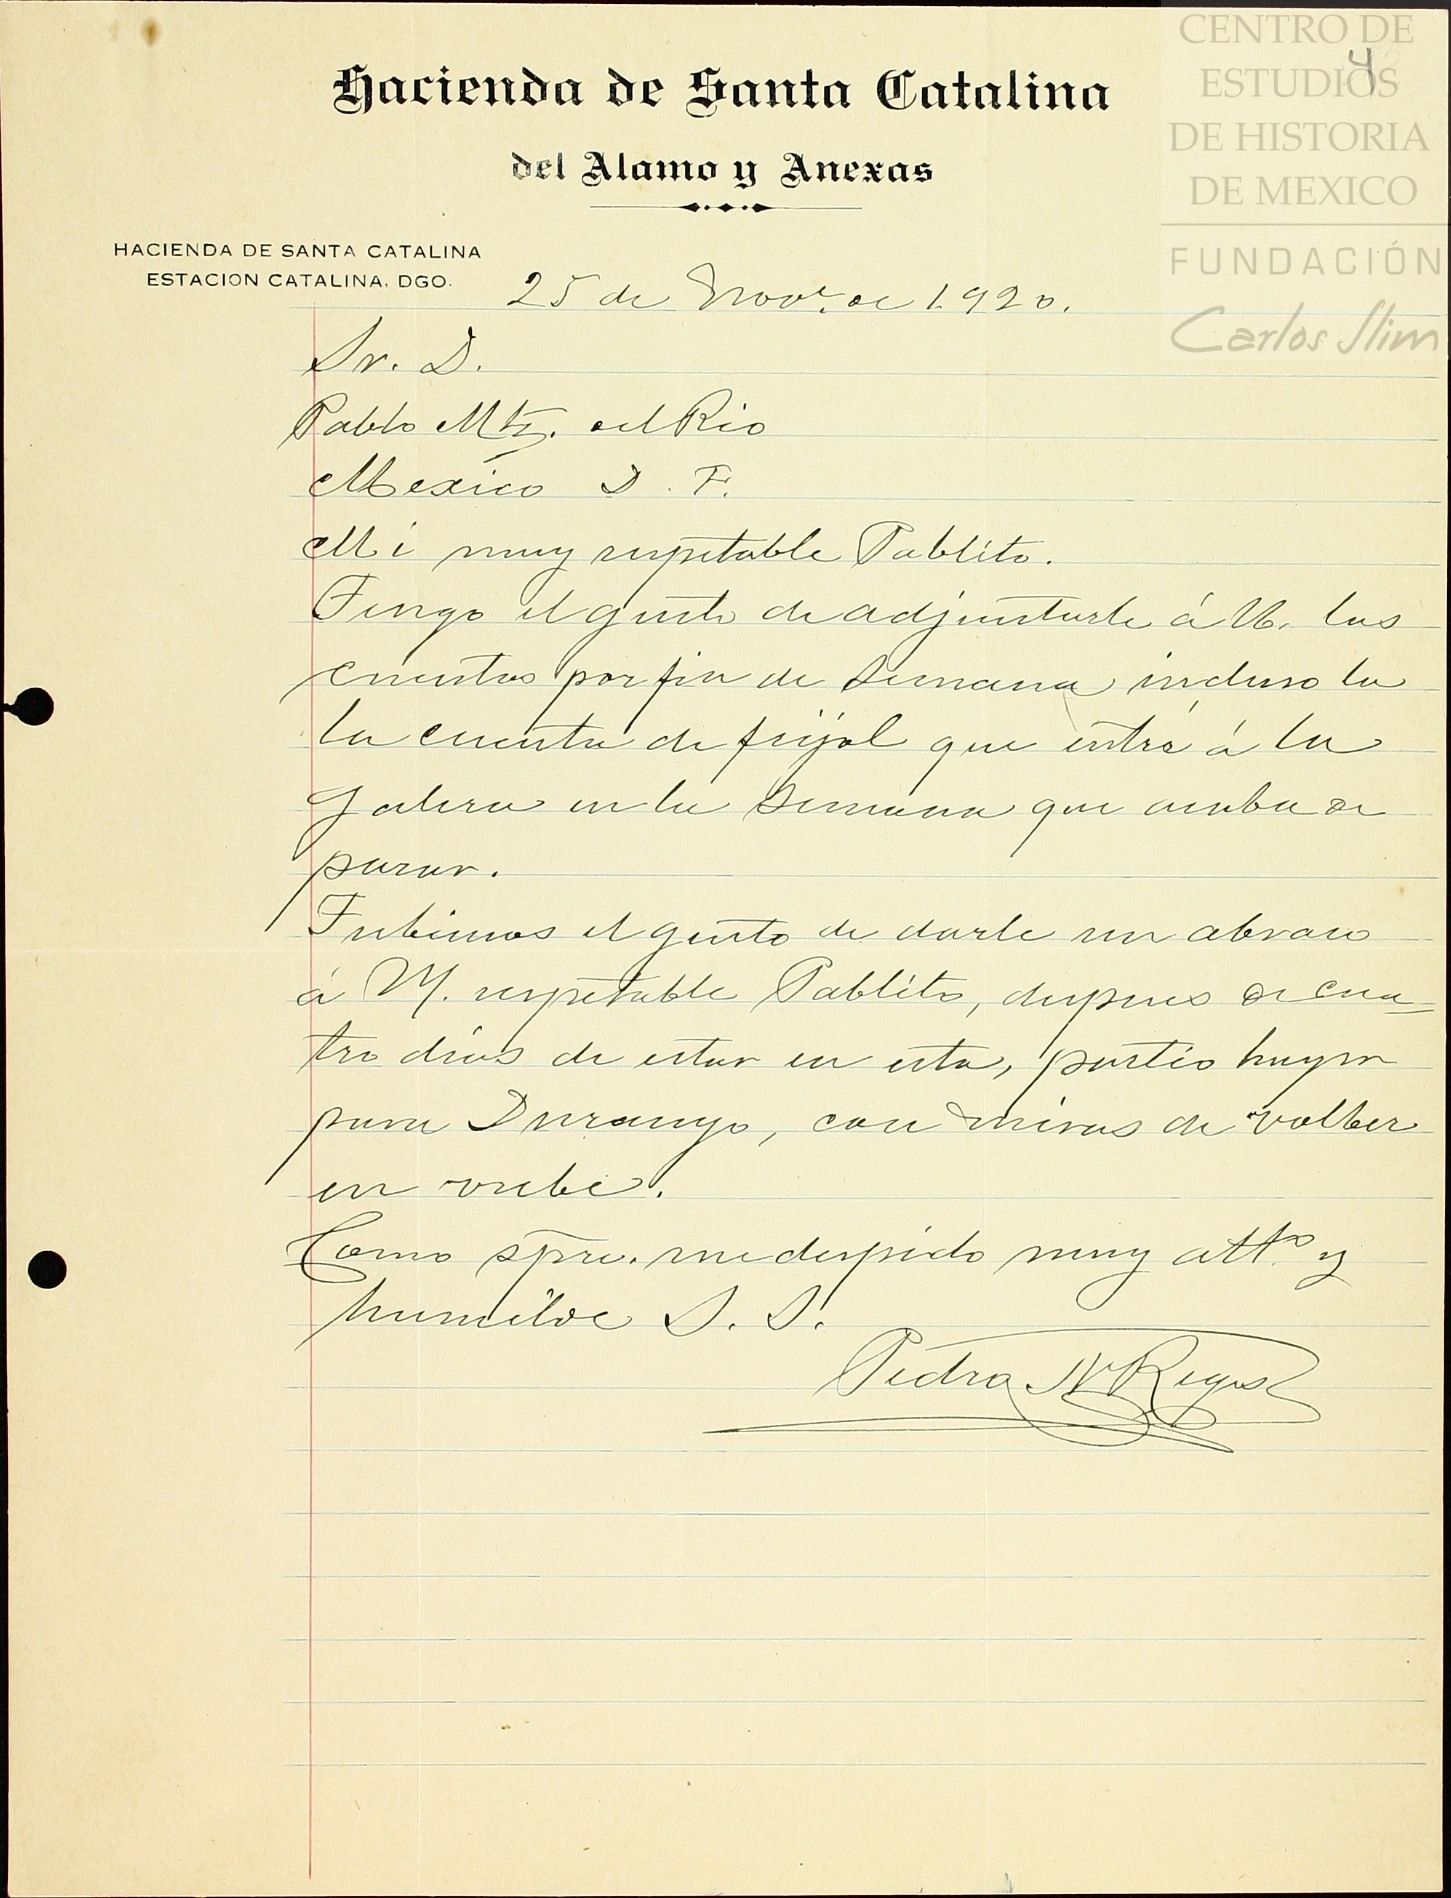 Hacienda de Santa Catalina
del Alamo y Anexas
CENTRO DE
ESTUDIOS
DE HISTORIA
DE MEXICO
FUNDACIÓN
Carlos Slim
4
HACIENDA DE SANTA CATALINA
ESTACION CATALINA, DGO.
25 de Novr. de 1920.
Sr. D.
Pablo Mtz. del Rio
México D. F.
Mi muy respetable Pablito.
Tengo el gusto de adjuntarle á U. las
cuentas por fin de semana incluso la
la cuenta de frijol que entró á la
galera en la semana que acaba de
pasar.
Tubimos el gusto de darle un abraso
á M. respetable Pablito, despues de cua=
tro dias de estar en esta, partio
para Durango, con miras de volber
en
Como spre. me despido muy atto. y
humilde S. S.
Pedro N Reyes